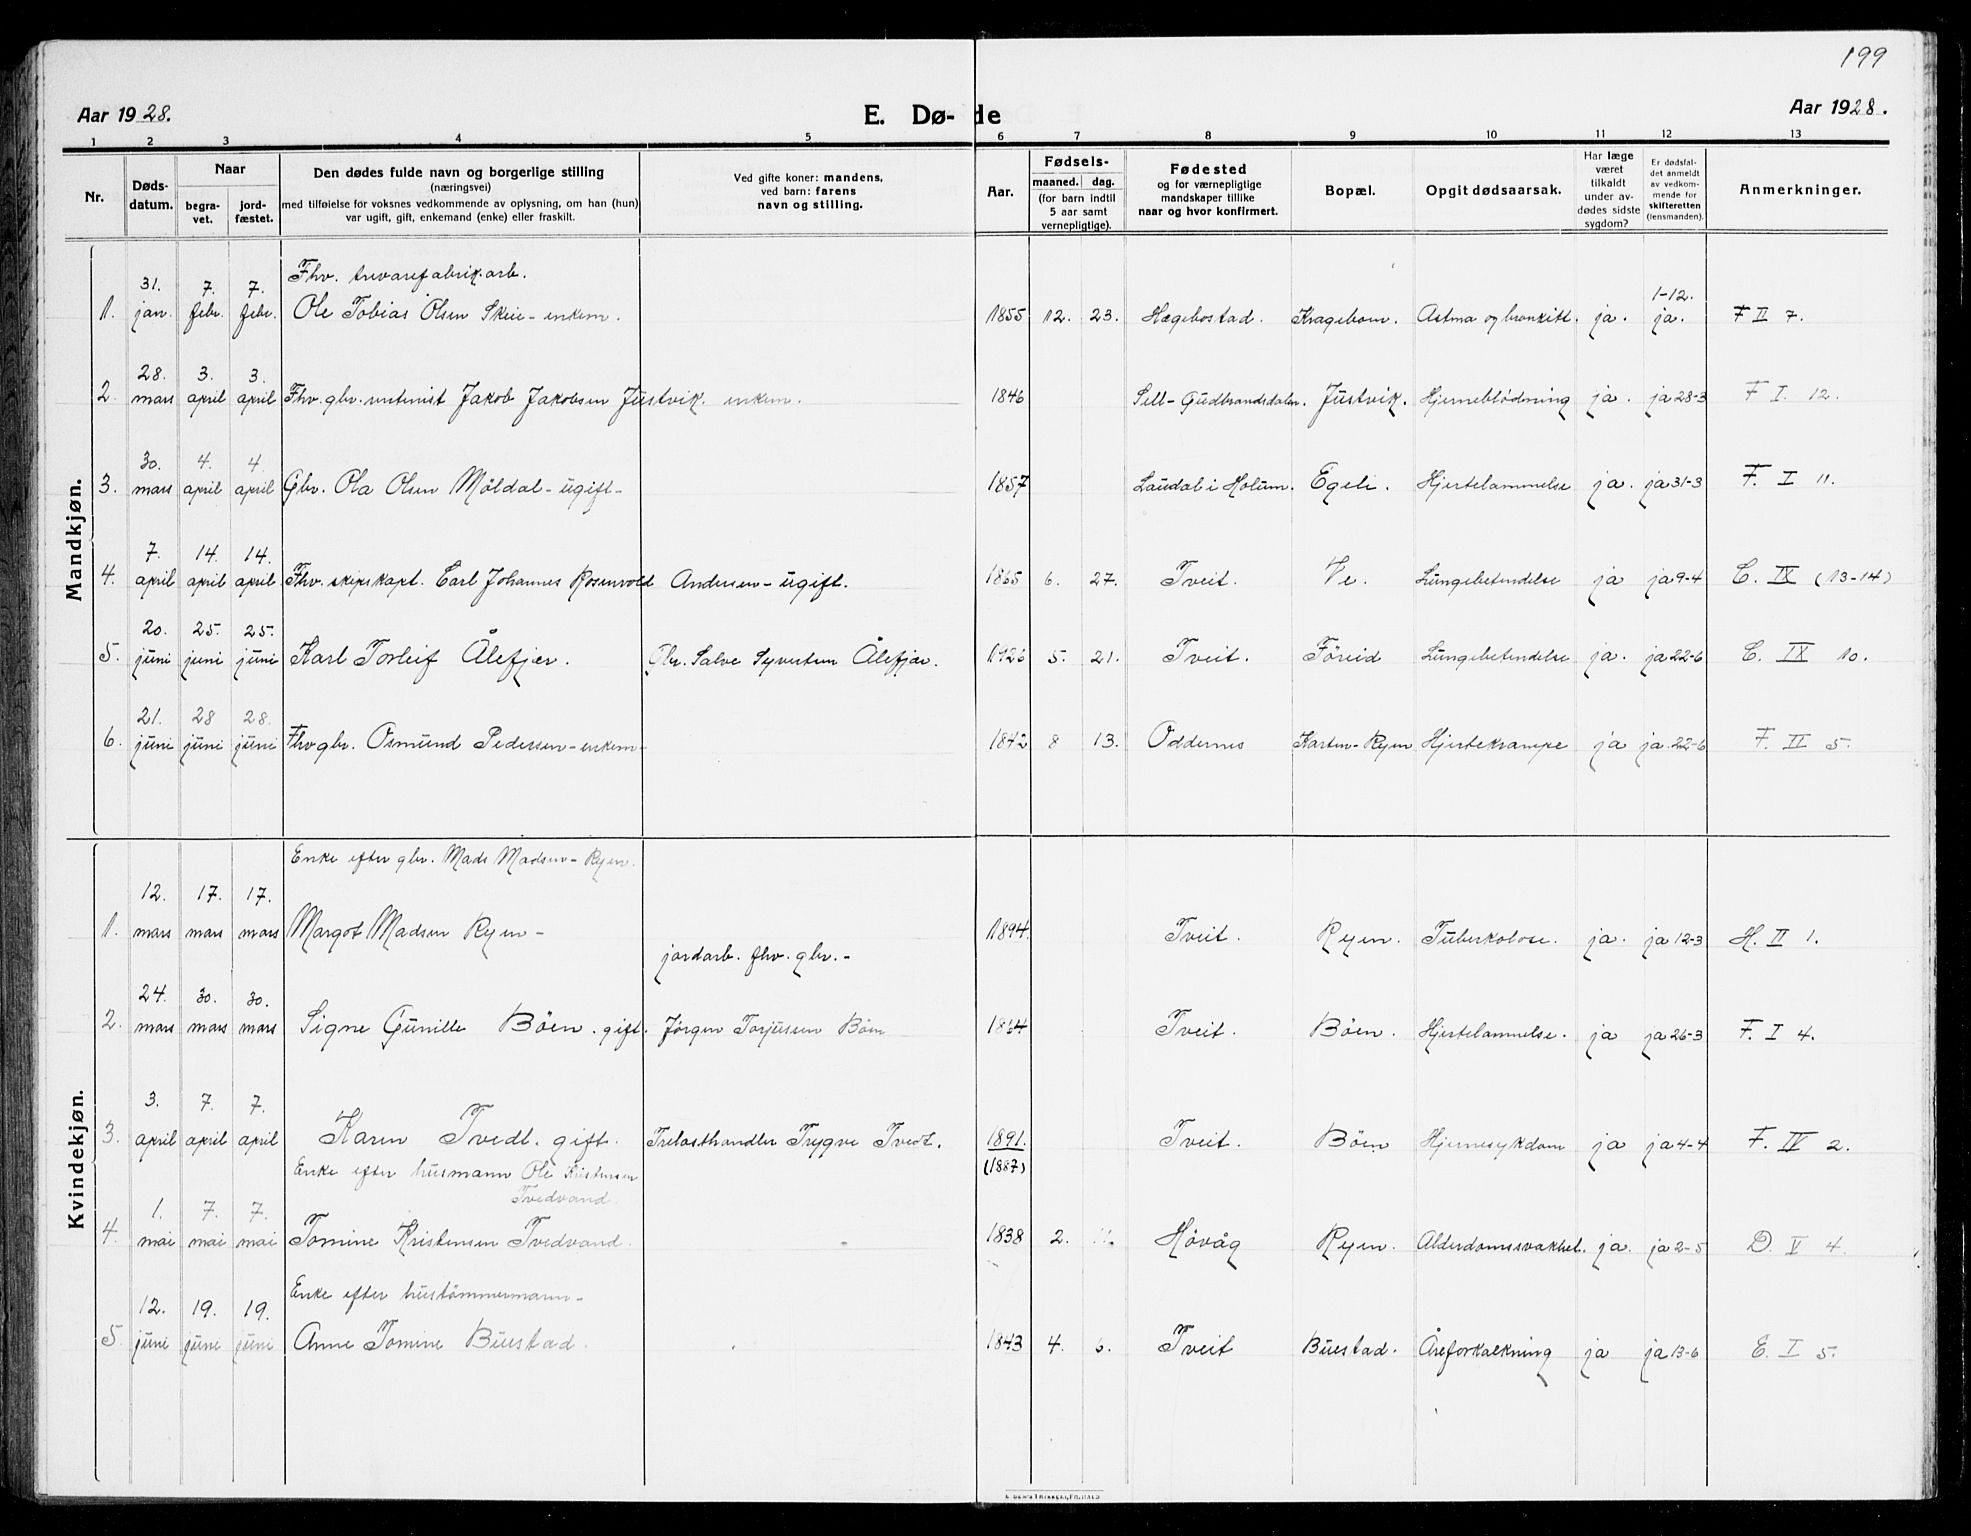 199
Aar 1928. E. Dø- de Aar 1928.
1 2 3 4 5 6 7 8 9 10 11 12 13
Nr. Døds-datum. Naar begra-vet. jord-fæstet. Den dødes fulde navn og borgerlige stilling (næringsvei) med tilføielse før voksnes vedkommende av oplysning, om han (hun) var ugift, gift, enkemand (enke) eller fraskilt. Ved gifte koner: mandens, ved barn: farens navn og stilling. Aar. Fødsels- maaned. dag. (for barn indtil 5 aar samt vernepligtige). Fødested og for værnepligtige mandskaper tillike naar og hvor konfirmert. Bopæl. Opgit dødsaarsak. Har læge været tilkaldt under av-dødes sidste sygdom? Er dødsfal-det anmeldt av vedkom-mende for skifteretten (lensmanden). Anmerkninger.
Mandkjøn.
31. 7. 7. Fhv. trevarefabrik.arb. 1-12.
1. jan. febr. febr. Ole Tobias Olsen Skeie - enkem. 1855 12. 23. Hægebostad. Kragebom. Astma og bronkitt. ja. ja. F II 7.
28. 3. 3.
2. mars april april Fhv. gbr. Jakob Jakobsen Justvik. enkem. 1846 Sell - Gudbrandsdalen. Justvik. Hjerneblödning ja. ja 28-3 F I. 12.
30. 4. 4.
3. mars april april Gbr. Ola Olsen Möldal - ugift - 1857 Laudal i Holum. Egeli. Hjertelammelse ja. ja 31-3 F. I 11.
7. 14. 14.
4. april april april Fhv. skipskapt. Carl Johannes Rosenvold Andersen - ugift. 1865 6. 27. Tveit. Ve. Lungebetendelse ja ja 9-4 C. IX (13-14)
20. 25. 25.
5. juni juni juni Karl Torleif Ålefjær. Gbr. Salve Syvertsen Ålefjær. 1926 5. 21. Tveit. Föreid Lungebetendelse ja. ja 22-6 C. IX 10.
21. 28 28.
6. juni juni juni Fhv gbr. Osmund Pedersen - enkem - 1842 8 13. Oddernes Karsten - Ryen Hjertekrampe ja ja. 22-6 F. II 5.
Kvindekjøn.
Enke efter gbr. Mads Madsen - Ryen.
12. 17. 17.
1. mars mars mars Margot Madsen Ryen - 1894. Tveit. Ryen. Tuberkolose. ja. ja 12-3 H. II 1.
jordarb. fhv. gbr. -
24. 30. 30.
2. mars mars mars Signe Gunille Böen. gift. Jörgen Torjussen Böen 1864 Tveit. Böen. Hjertelammelse. ja ja 26-3 F. I 4.
3. 7. 7.
3. april april april Karen Tvedt. gift. Trelasthandler Trygve Tvedt. 1891. Tveit. Böen Hjernesykdom ja ja 4-4 F. IV 2.
(1887)
Enke efter husmann Ole Kristensen
Tvedvand.
1. 7. 7.
4. mai mai mai Tomine Kristensen Tvedvand. 1838 2. Hövåg Ryen. Alderdomssvakhet. ja. ja 2-5 D. V 4.
Enke efter hustömmermann -
12. 19. 19.
5. juni juni juni Anne Tomine Buestad. 1843 4. 6. Tveit Buestad. Åreforkalkning ja ja 13-6 E. I 5.